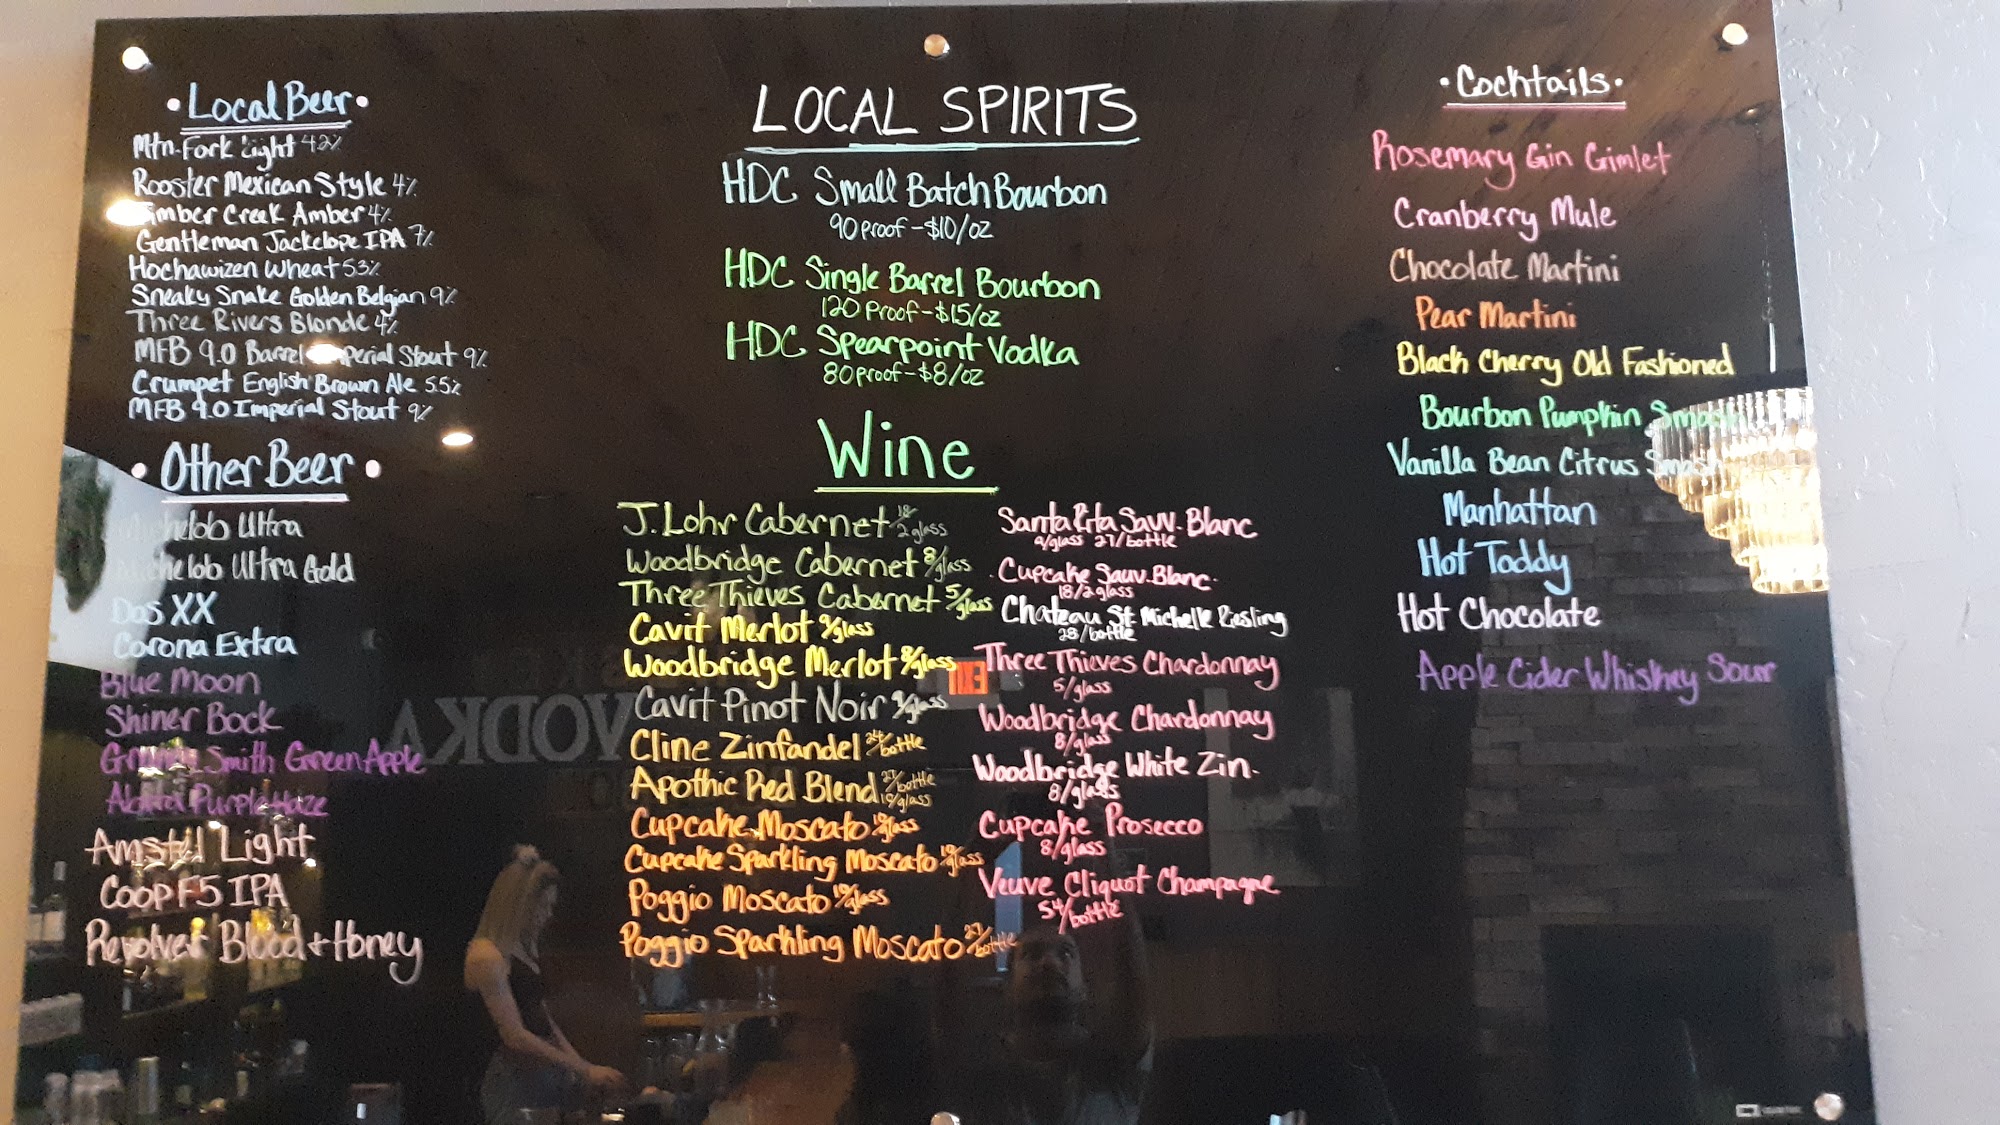 • Local Beer •
Mtn. Fork Light 4.2%
Rooster Mexican Style 4%
Timber Creek Amber 4%
Gentleman Jackelope IPA 7%
Hochawizen Wheat 5.3%
Sneaky Snake Golden Belgian 9%
Three Rivers Blonde 4%
MFB 9.0 Barrel Imperial Stout 9%
Crumpet English Brown Ale 5.5%
MFB 9.0 Imperial Stout 9%
• Other Beer •
Michelob Ultra
Michelob Ultra Gold
Dos XX
Corona Extra
Blue Moon
Shiner Bock
Granny Smith Green Apple
Abita Purple Haze
Amstel Light
Coop F5 IPA
Revolver Blood + Honey
LOCAL SPIRITS
HDC Small Batch Bourbon
90 proof - $10/oz
HDC Single Barrel Bourbon
120 Proof - $15/oz
HDC Spearpoint Vodka
80 proof - $8/oz
Wine
J. Lohr Cabernet 18/2 glass
Woodbridge Cabernet 8/glass
Three Thieves Cabernet 5/glass
Cavit Merlot 9/glass
Woodbridge Merlot 8/glass
Cavit Pinot Noir 9/glass
Cline Zinfandel 24/bottle
Apothic Red Blend 27/bottle
10/glass
Cupcake Moscato 10/glass
Cupcake Sparkling Moscato 10/glass
Poggio Moscato 10/glass
Poggio Sparkling Moscato 27/bottle
Santa Rita Sauv. Blanc
9/glass 27/bottle
Cupcake Sauv. Blanc.
18/2 glass
Chateau St Michelle Riesling
28/bottle
Three Thieves Chardonnay
5/glass
Woodbridge Chardonnay
8/glass
Woodbridge White Zin.
8/glass
Cupcake Prosecco
8/glass
Veuve Cliquot Champagne
54/bottle
• Cocktails •
Rosemary Gin Gimlet
Cranberry Mule
Chocolate Martini
Pear Martini
Black Cherry Old Fashioned
Bourbon Pumpkin Smash
Vanilla Bean Citrus Smash
Manhattan
Hot Toddy
Hot Chocolate
Apple Cider Whiskey Sour
VODKA